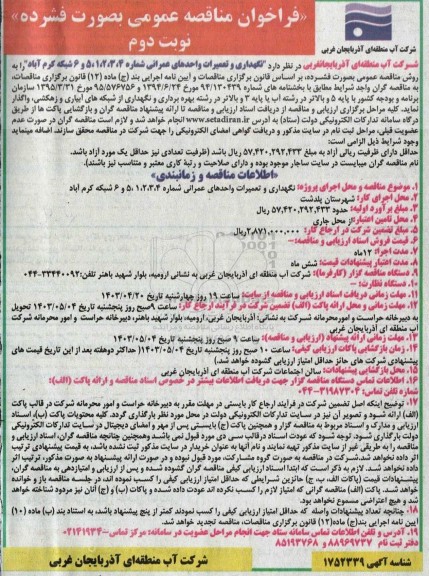 «فراخوان مناقصه عمومی بصورت فشرده»
نوبت دوم
شرکت آب منطقه‌ای آذربایجان غربی
شرکت آب منطقه‌ای آذربایجانغربی در نظر دارد "نگهداری و تعمیرات واحدهای عمرانی شماره ۱،۲،۳،۴، ۵ و ۶ شبکه کرم آباد" را به
روش مناقصه عمومی بصورت فشرده، بر اساس قانون برگزاری مناقصات و آیین نامه اجرایی بند (ج) ماده (۱۲) قانون برگزاری مناقصات،
به مناقصه گران واجد شرایط مطابق با بخشنامه های شماره ۹۴/۱۳۰۴۳۹ مورخ ۱۳۹۴/۶/۲۴ و ۹۵/۵۷۶۷۵۶ مورخ ۱۳۹۵/۳/۳۱ سازمان
برنامه و بودجه کشور با پایه ۵ و بالاتر در رشته آب یا پایه ۳ و بالاتر در رشته بهره برداری و نگهداری از شبکه های آبیاری و زهکشی، واگذار
نماید. کلیه مراحل برگزاری مناقصه از دریافت اسناد ارزیابی و مناقصه تا ارائه پیشنهاد مناقصه گران و بازگشایی پاکات ها از طریق
درگاه سامانه تدارکات الکترونیکی دولت (ستاد) به آدرس www.setadiran.ir انجام خواهد شد و لازم است مناقصه گران در صورت عدم
عضویت قبلی، مراحل ثبت نام در سایت مذکور و دریافت گواهی امضای الکترونیکی را جهت شرکت در مناقصه محقق سازند. اضافه مینماید
وجود شرایط ذیل الزامی است:
حداقل دارای ظرفیت ریالی آزاد به مبلغ ۵۷,۴۲۰,۲۹۲,۴۳۳ ریال باشد (ظرفیت تعدادی نیز حداقل یک مورد آزاد باشد.
نام مناقصه گران میبایست در سایت ساجار موجود بوده و دارای صلاحیت و رتبه کاری معتبر و متناسب نیز باشند).
«اطلاعات مناقصه و زمانبندی»
۱. موضوع مناقصه و محل اجرای پروژه: نگهداری و تعمیرات واحدهای عمرانی شماره ۱،۲،۳،۴، ۵ و ۶ شبکه کرم آباد
۲. محل اجرای کار: شهرستان پلدشت
۳. مبلغ برآورد اولیه: حدود ۵۷,۴۲۰,۲۹۲,۴۳۳ ریال
۴. محل تامین اعتبار: از محل جاری
۵. مبلغ تضمین شرکت در ارجاع کار: ۲,۸۷۱,۰۰۰,۰۰۰ ریال
۶. قیمت فروش اسناد ارزیابی و مناقصه: -
۷. مدت اجرا: ۱۲ ماه
۸. مدت اعتبار پیشنهادات قیمت: شش ماه
۹. دستگاه مناقصه گزار (کارفرما): شرکت آب منطقه ای آذربایجان غربی به نشانی ارومیه، بلوار شهید باهنر تلفن: ۳۳۴۴۰۰۹۲-۰۴۴
۱۰. دستگاه نظارت: -
۱۱. مهلت زمانی دریافت اسناد ارزیابی و مناقصه از سایت: ساعت ۱۹ روز چهارشنبه تاریخ ۱۴۰۳/۰۴/۲۰
۱۲. مهلت زمانی و محل ارائه پاکت (الف) (تضمین شرکت در فرآیند ارجاع کار): ساعت ۹ صبح روز پنجشنبه تاریخ ۱۴۰۳/۰۵/۰۴ تحویل
به دبیرخانه حراست و امور محرمانه شرکت به نشانی: آذربایجان غربی، ارومیه، بلوار شهید باهنر، دبیرخانه حراست و امور محرمانه شرکت
آب منطقه ای آذربایجان غربی
۱۳. مهلت زمانی ارائه پیشنهاد (ارزیابی و مناقصه): ساعت ۹ صبح روز پنجشنبه تاریخ ۱۴۰۳/۰۵/۰۴
۱۴. زمان بازگشایی پاکات ارزیابی کیفی: ساعت ۱۰ صبح روز پنجشنبه تاریخ ۱۴۰۳/۰۵/۰۴ (حداکثر دوهفته بعد از این تاریخ قیمت های
پیشنهادی شرکت های حائز حداقل امتیاز ارزیابی گشوده خواهد شد.)
۱۵. محل بازگشایی پیشنهادات: سالن اجتماعات شرکت آب منطقه ای آذربایجان غربی
۱۶. اطلاعات تماس دستگاه مناقصه گزار جهت دریافت اطلاعات بیشتر در خصوص اسناد مناقصه و ارائه پاکت (الف):
شماره تلفن تماس: ۳۱۹۸۷۳۰۴-۰۴۴
۱۷. توضیح اینکه اصل تضمین شرکت در فرآیند ارجاع کار بایستی در مهلت مقرر به دبیرخانه حراست و امور محرمانه شرکت در قالب پاکت
(الف) ارائه شود و تصویر آن نیز در سایت تدارکات الکترونیکی دولت در محل مورد نظر بارگذاری گردد. کلیه محتویات پاکت (ب)، اسناد
ارزیابی و مدارک و اسناد مربوط به مناقصه گزار و همچنین پاکت (ج) بایستی پس از مهر و امضای دیجیتال در سایت تدارکات الکترونیکی
دولت بارگذاری شود. توجه شود که عودت اسناد در قالب سی دی مورد قبول نمی باشد. وهمچنین چنانچه مناقصه گران، اسناد ارزیابی و
مناقصه را به طریقی غیر از سایت مذکور تهیه نمایند و نام آنها به عنوان خریدار در سایت مذکور ثبت نشده باشد، به قیمت پیشنهادی ترتیب
اثر داده نخواهد شد. شرکت در مناقصه به صورت گروه مشارکت، مورد قبول نبوده و در صورت ارائه پیشنهاد به صورت مذکور، ترتیب اثر
داده نخواهد شد. لازم به ذکر است که ابتدا اسناد ارزیابی کیفی مناقصه گران گشوده شده و پس از ارزیابی و امتیازدهی به مناقصه گران،
پیشنهادات قیمت (پاکات الف، ب، ج) حائزین شرایطی که حداقل امتیاز ارزیابی کیفی را کسب نموده اند، در جلسه مناقصه باز و خوانده
خواهد شد. پاکت (الف) مناقصه گرانی که امتیاز لازم را کسب نکرده اند عودت داده شده و پاکات (ب) و (ج) آنان نیز مردود شناخته خواهد
شد و هیچ اعتراضی مسموع نخواهد بود.
۱۸. چنانچه تعداد پیشنهادات واصله که حداقل امتیاز ارزیابی کیفی را کسب نمودند کمتر از پنج پیشنهاد باشد، به استناد بند (ب) ماده (۱۰)
آیین نامه اجرایی بند (ج) ماده (۱۲) قانون برگزاری مناقصات، مناقصه تجدید خواهد شد.
۱۹. آدرس و تلفن اطلاعات تماس سامانه ستاد جهت انجام مراحل عضویت در سامانه: مرکز تماس ۰۲۱۴۱۹۳۴
دفتر ثبت نام ۸۸۹۶۹۷۳۷ و ۸۵۱۹۳۷۶۸
شناسه آگهی ۱۷۵۲۳۳۹
شرکت آب منطقه‌ای آذربایجان غربی